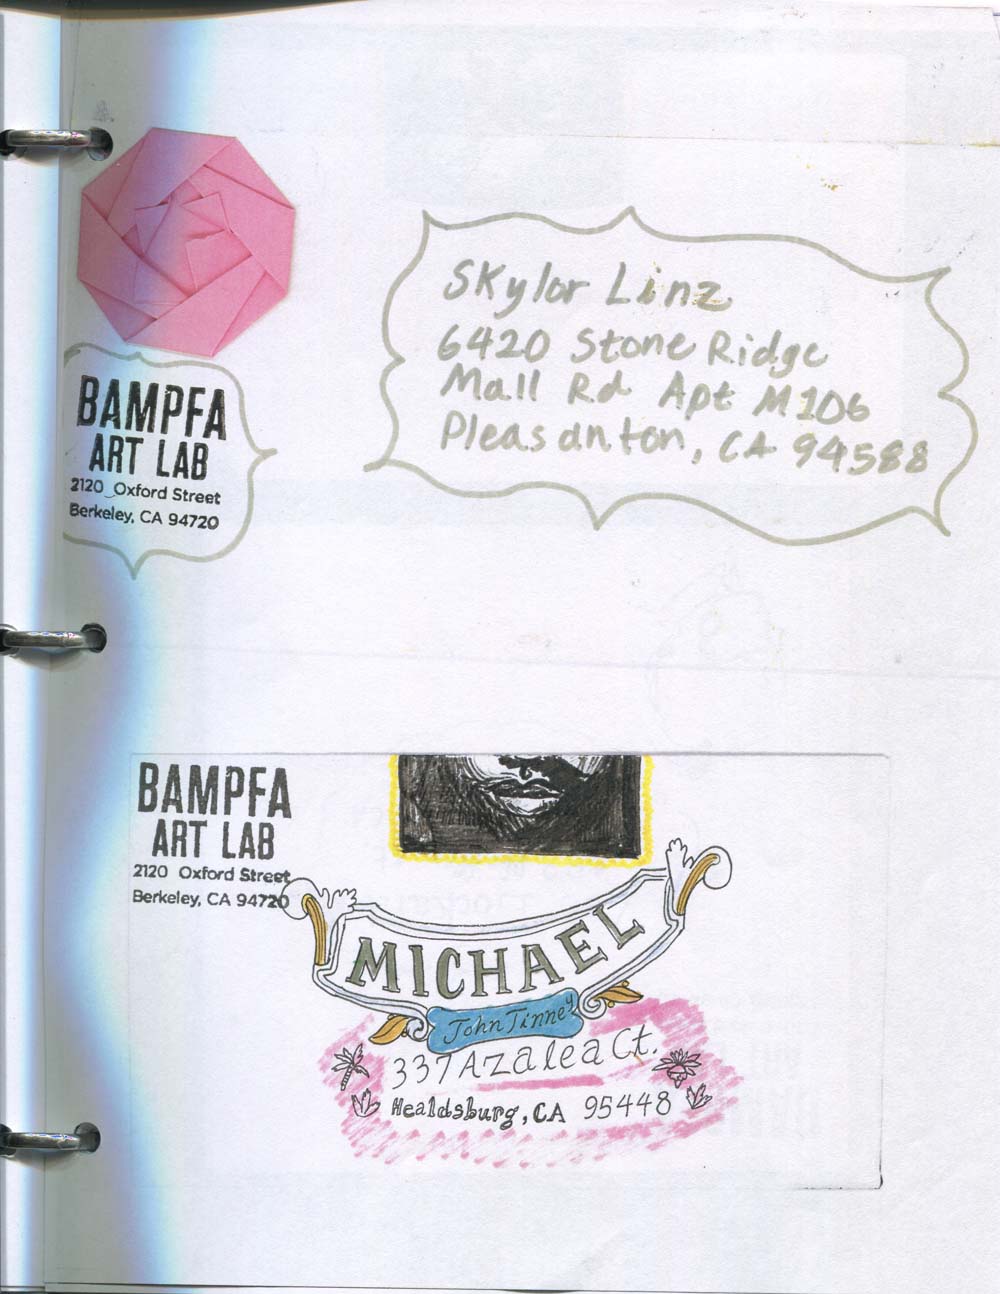 BAMPFA
ART LAB
2120 Oxford Street
Berkeley, CA 94720
Skylor Linz
6420 Stone Ridge
Mall Rd Apt M106
Pleasanton, CA 94588
BAMPFA
ART LAB
2120 Oxford Street
Berkeley, CA 94720
MICHAEL
John Tinney
337 Azalea Ct.
Healdsburg, CA 95448